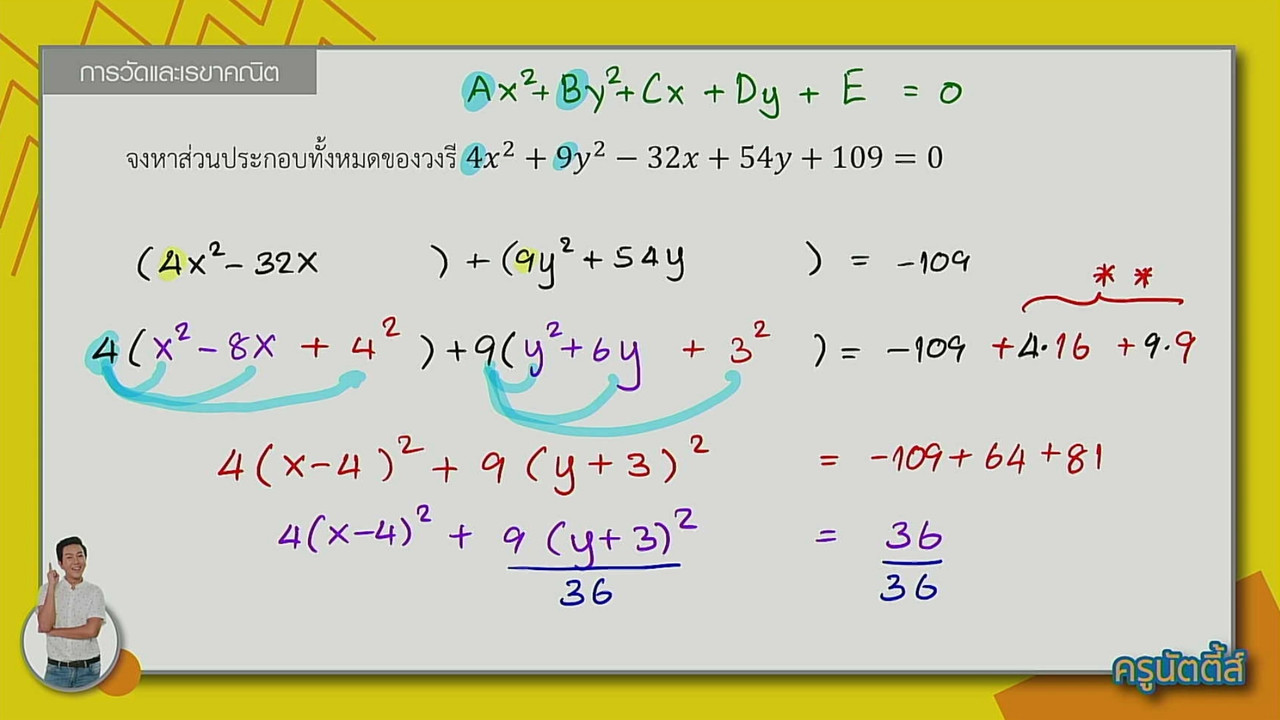 การวัดและเรขาคณิต
Ax² + By² + Cx + Dy + E = 0
จงหาส่วนประกอบทั้งหมดของวงรี 4x² + 9y² − 32x + 54y + 109 = 0
(4x² − 32x ) + (9y² + 54y ) = −109
* *
4(x² − 8x + 4²) + 9(y² + 6y + 3²) = −109 + 4·16 + 9·9
4(x−4)² + 9(y+3)² = −109 + 64 + 81
4(x−4)² + 9(y+3)² = 36
36 36
ครูนัตตี้ส์